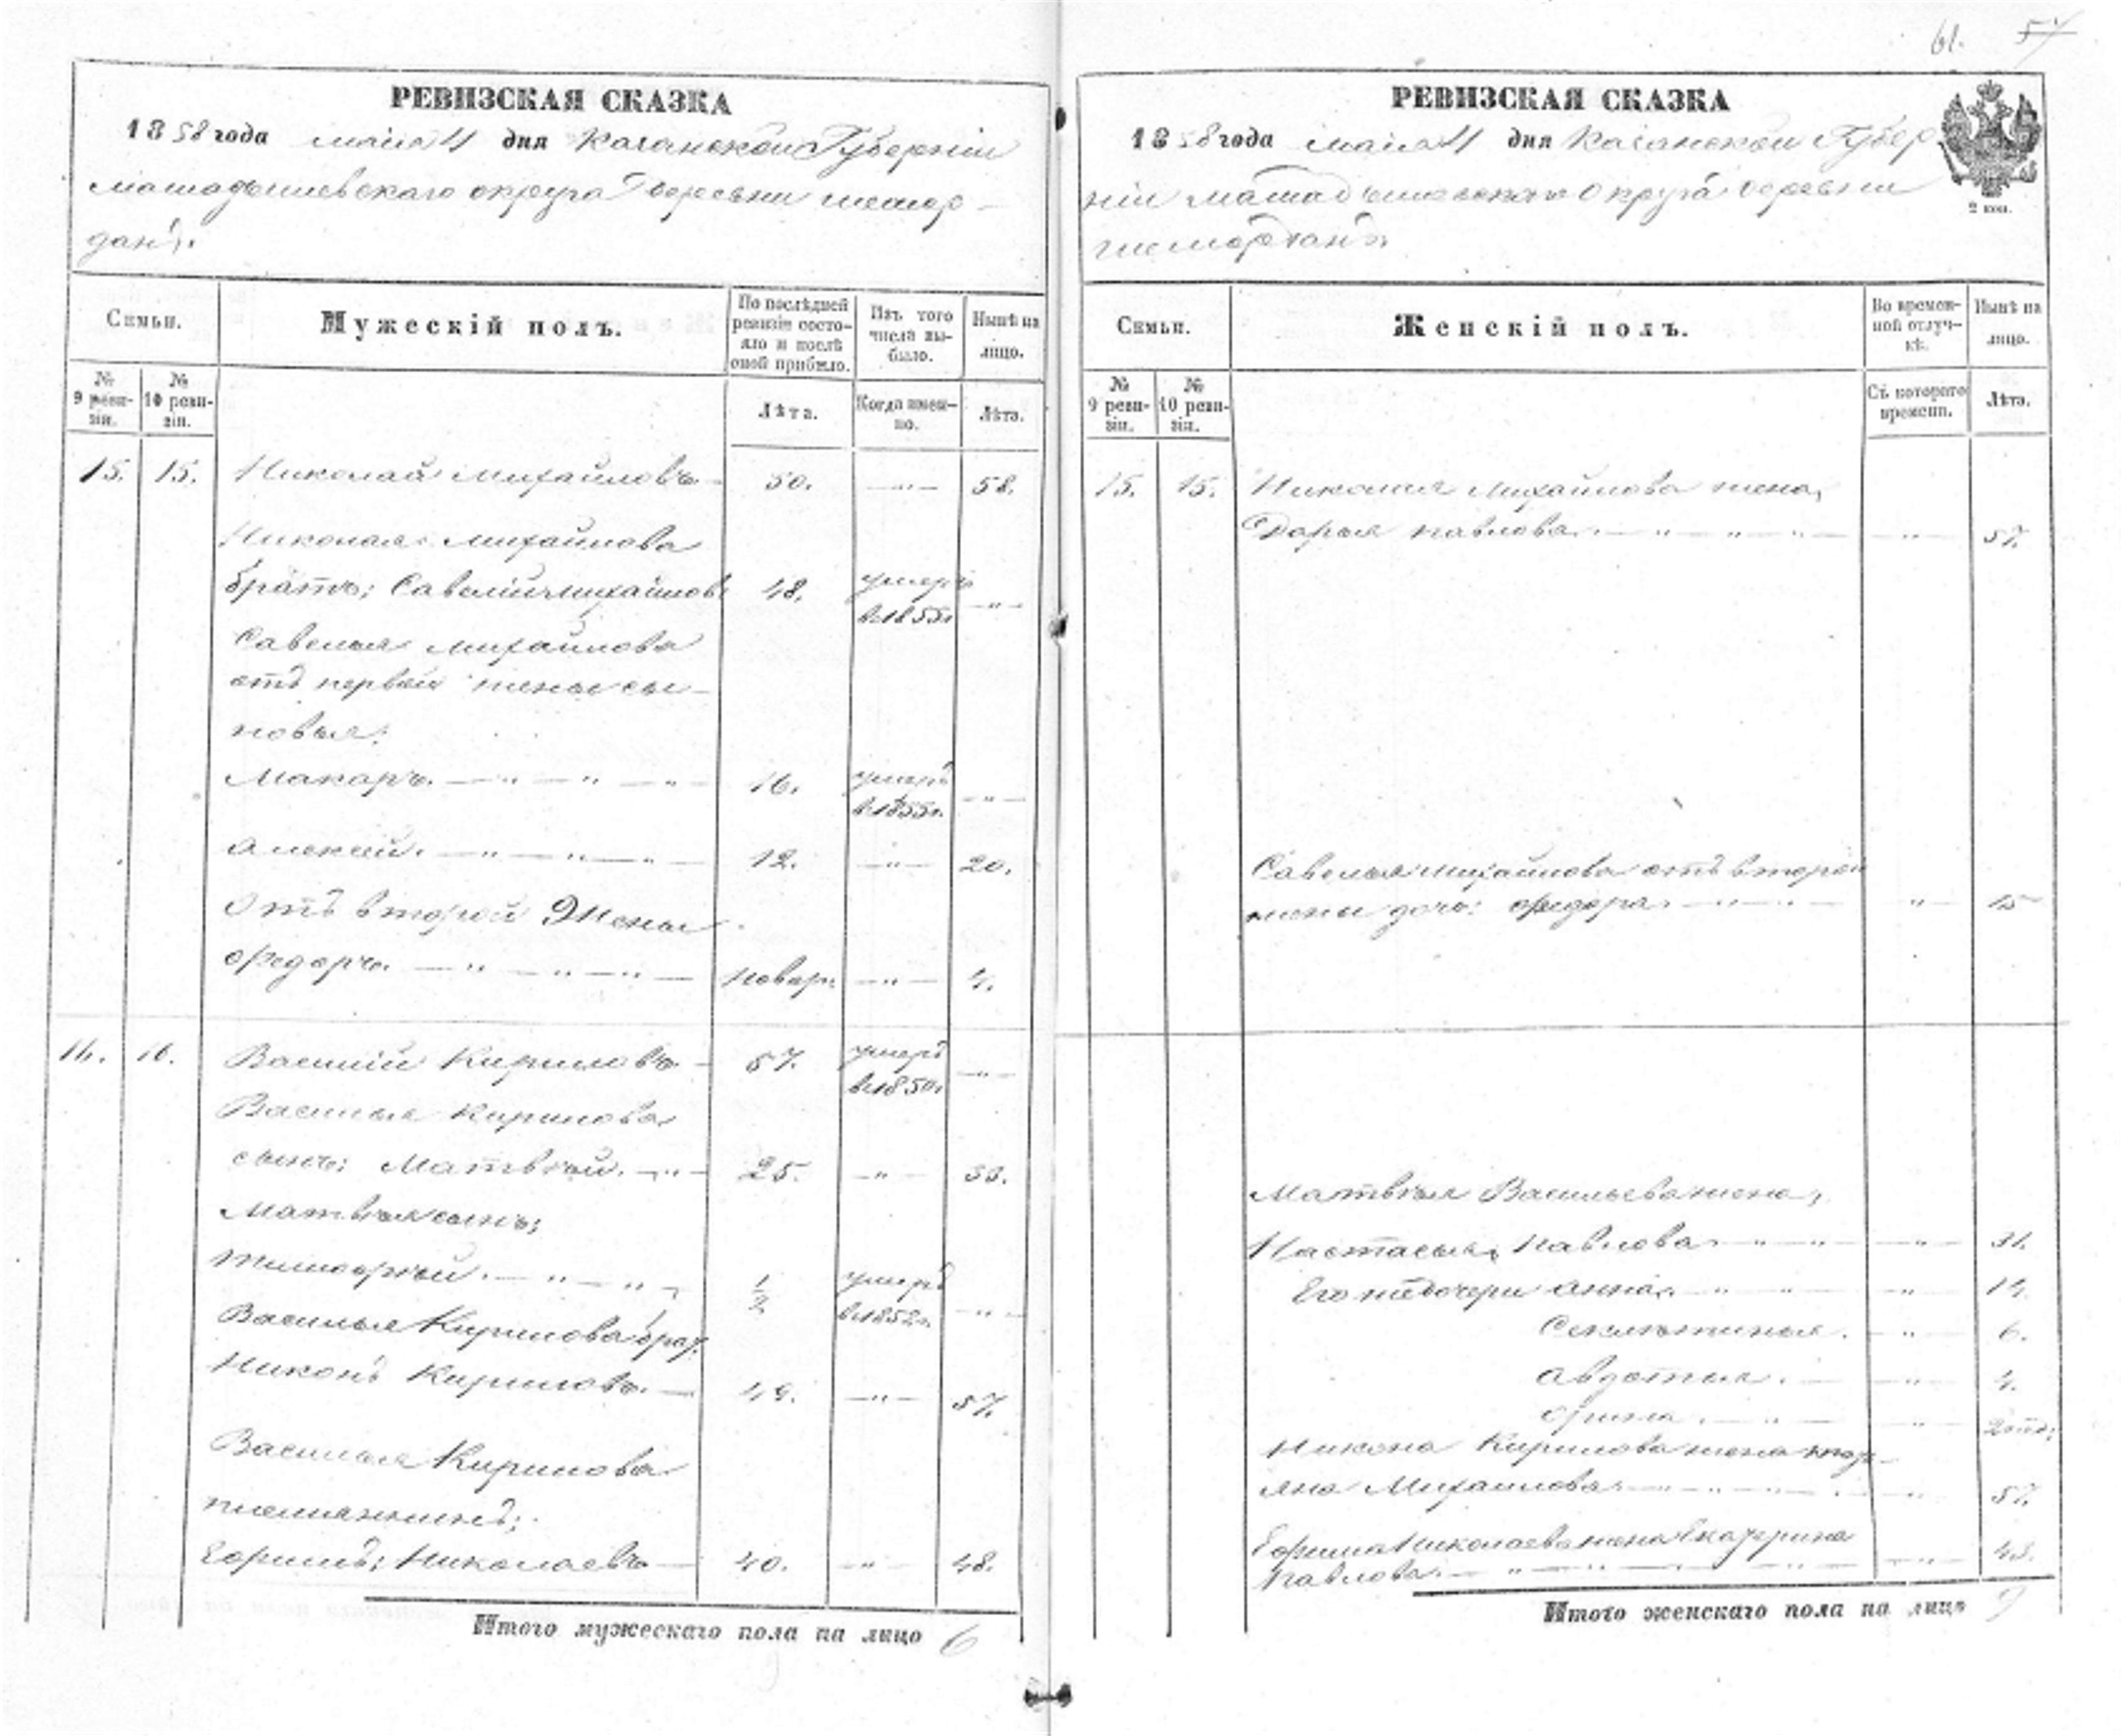 61. 57
РЕВИЗСКАЯ СКАЗКА
1858 года маія 4 дня Казанской Губерніи
Мамадышевскаго округа деревни шемор-
данъ.
Семьи.
Мужескій полъ.
По послѣдней
ревизіи состо-
яло и послѣ
оной прибыло.
Изъ того
числа вы-
было.
Нынѣ на
лицо.
№
9 реви-
зіи.
№
10 реви-
зіи.
Лѣта.
Когда имен-
но.
Лѣта.
15. 15. Николай михайловъ 50. — " — 58.
Николая михайлова
братъ; Савелій михайловъ 48. умеръ
в 1855г — " —
Савелья михайлова
отъ первой жены сы-
новья:
Макаръ. — " — " — " 16. умеръ
в 1855г. — " —
Алексѣй. — " — " — " — 12. — " — 20.
Отъ второй Жены
Федоръ. — " — " — " — новор: — " — 4.
16. 16. Василій Кириловъ 57. умеръ
в 1850г — " —
Василья Кирилова
сынъ: Матвѣй. — " — 25. — " — 33.
Матвѣя сынъ;
Тимофѣй. — " — " — 1/2 умеръ
в 1852г. — " —
Василья Кирилова брат:
Никонъ Кириловъ. — 49. — " — 57.
Василья Кирилова
племянникъ;
Ефимъ; Николаевъ — 40. — " — 48.
Итого мужескаго пола на лицо 6
РЕВИЗСКАЯ СКАЗКА
1858 года маія 4 дня Казанской Губер
ніи мамадышевскаго округа деревни
шеморданъ
2 коп.
Семьи.
Женскій полъ.
Во времен-
ной отлуч-
кѣ.
Нынѣ на
лицо.
№
9 реви-
зіи.
№
10 реви-
зіи.
Съ котораго
времени.
Лѣта.
15. 15. Николая Михайлова жена,
Дарья павлова. — " — " — " — — " — 57.
Савелья михайлова отъ второй
жены дочь: Федора. — " — " — 15
Матвѣя Васильева жена;
Настасья, Павлова — " — " — " — 31.
Его же дочери анна. — " — " — " — 14.
Секлитинья. — " — 6.
авдотья. — " — 4.
орина. — " — " —
Никона Кирилова жена мар-
яна Михайлова — " — " — " — 57.
Ефима Николаева жена Екатерина
Павлова. — " — " — " — " — 43.
Итого женскаго пола на лицо 9